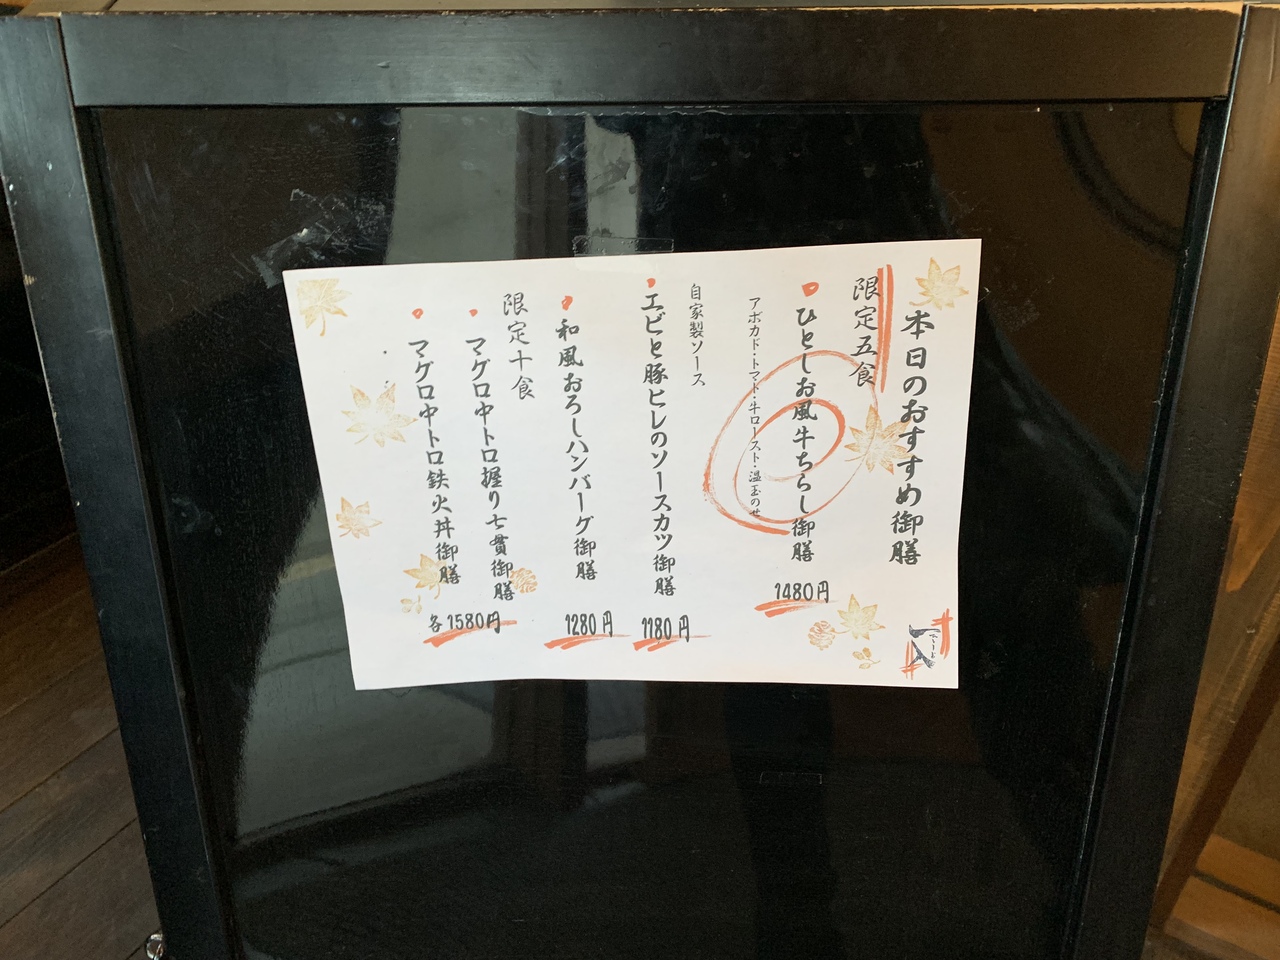 本日のおすすめ御膳
限定五食
ひとしお風牛ちらし御膳
1480円
アボカド・トマト・牛ロースト・温玉のせ
自家製ソース
エビと豚ヒレのソースカツ御膳
1180円
和風おろしハンバーグ御膳
1280円
限定十食
マグロ中トロ握り七貫御膳
マグロ中トロ鉄火丼御膳
各1580円